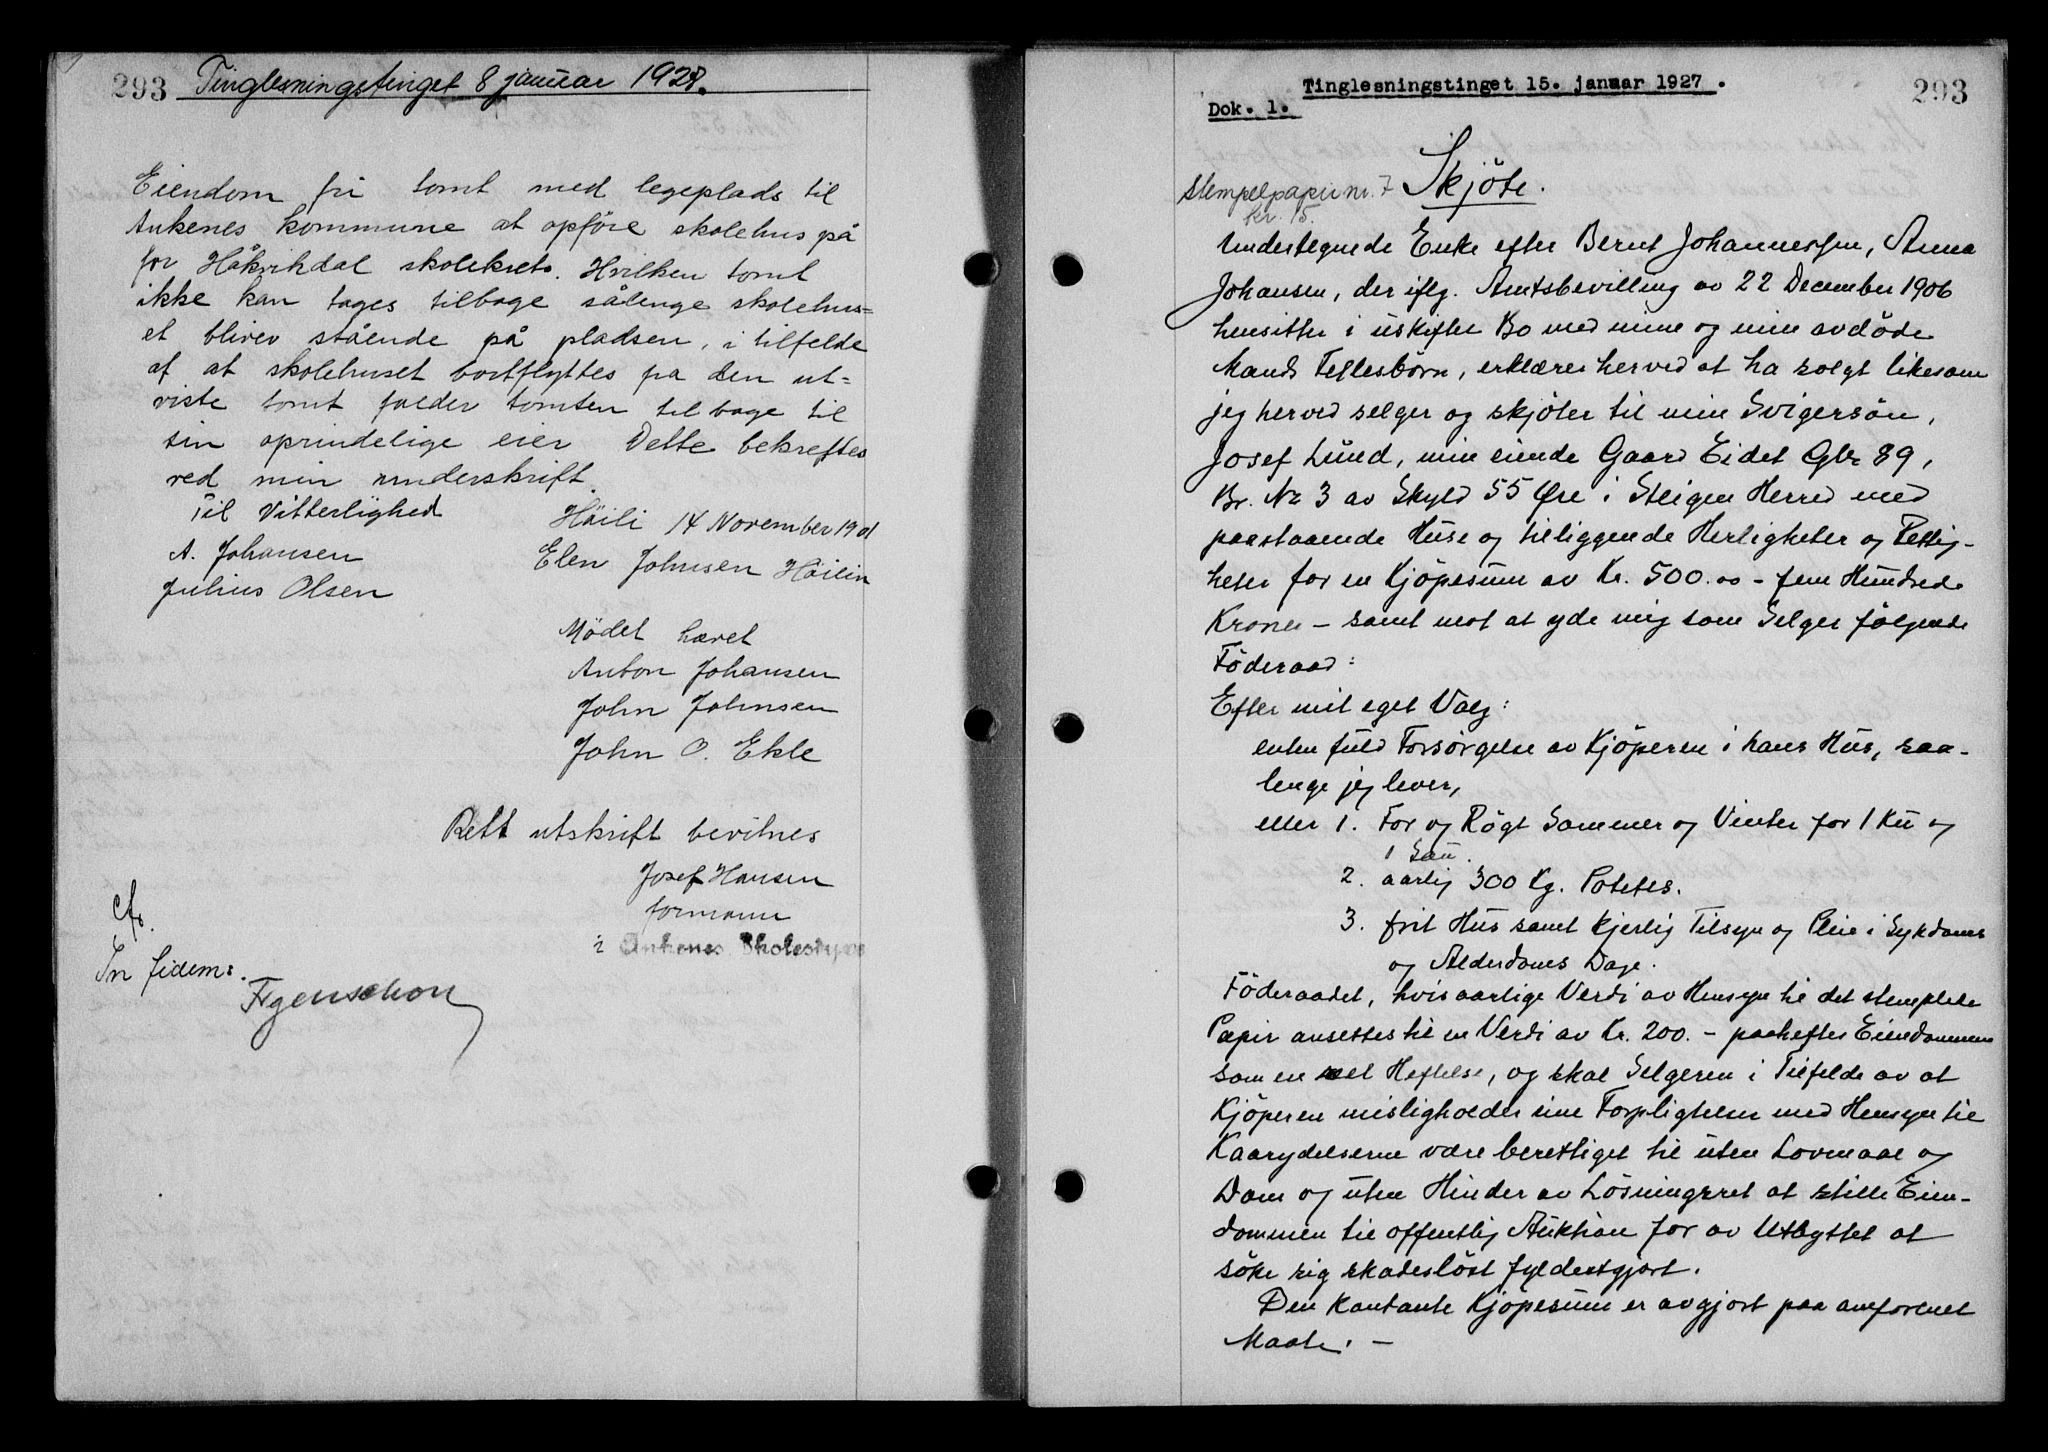 293 Tinglesningstinget 8 januar 1927.
Eiendom fri tomt med legeplads til
Ankenes kommune at opföre skolehus på
for Håkvikdal skolekrets. Hvilken tomt
ikke kan tages tilbage sålenge skolehus=
et bliver stående på pladsen, i tilfelde
af at skolehuset bortflyttes fra den ut=
viste tomt falder tomten tilbage til
sin oprindelige eier Dette bekreftes
ved min underskrift.
Til Vitterlighed
Håili 14 November 1901
A. Johansen
Elen Johnsen Håilien
Julius Olsen
Mödet hævet
Anton Johansen
John Johnsen
John O. Ekle
Rett utskrift bevitnes
Josef Hansen
formann
i Ankenes Skolestyre
cfr.
In fidem:
Fygenschou
Tinglesningstinget 15. januar 1927.
293
Dok. 1.
Stempelpapir nr. 7
kr. 15.
Skjöte.
Undertegnede Enke efter Bernt Johannessen, Anna
Johansen, der iflg. Amtsbevilling av 22 December 1906
hensitter i uskiftet Bo med mine og min avdöde
Mands Fellesbörn, erklærer herved at ha solgt likesom
jeg herved selger og skjöter til min Svigersön,
Josef Lund, min eiende Gaard Eidet Gbr 89,
Br. No 3 av Skyld 55 Øre i Steigen Herred med
paastaaende Huse og tilliggende Herligheter og Rettig-
heter for en Kjöpesum av Kr. 500.00 - fem Hundrede
Kroner - samt mot at yde mig som Selger følgende
Föderaad:
Efter mit eget Valg:
enten fuld Forsörgelse av Kjöperen i hans Hus, saa-
lenge jeg lever,
eller 1. For og Rögt Sommer og Vinter for 1 Ku og
1 Sau.
2. aarlig 300 Kg. Potetes.
3. frit Hus samt kjerlig Tilsyn og Pleie i Sykdoms
og Alderdoms Dage.
Föderaadet, hvis aarlige Verdi av Hensyn til det stemplede
Papir ansettes til en Verdi av Kr. 200. - paahefter Eiendommen
som en reel Heftelse, og skal Selgeren i Tilfelde av at
Kjöperen misligholder sine Forpligtelser med Hensyn til
Kaarydelserne være berettiget til uten Lovmaal og
Dom og uten Hinder av Lösningsret at stille Eien-
dommen til offentlig Auktion for av Utbyttet at
söke sig skadeslöst fyldestgjort.
Den kontante Kjöpesum er avgjort paa omforenet
Maate. -